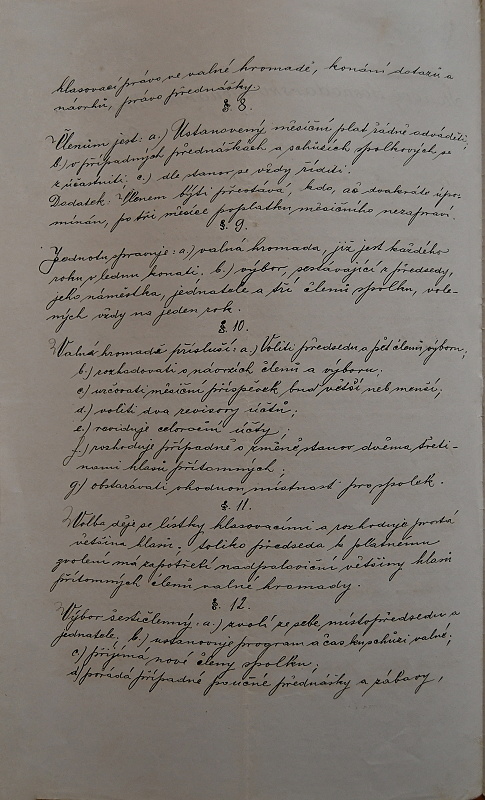 hlasovací právo ve valné hromadě, konání dotazů a
návrhů, právo přednášky.
§. 8.
Členům jest: a.) Ustanovený, měsíční plat řádně odváděti;
b.) v případných přednáškách a schůzích spolkových se
zúčastniti; c.) dle stanov se vždy říditi.
Dodatek: Členem býti přestává, kdo, ač dvakráte upo-
mínán, po tři měsíce poplatku měsíčního nezapraví.
§. 9.
Jednotu spravuje: a.) valná hromada, jíž jest každého
roku v lednu konati. b.) výbor, sestávající z předsedy,
jeho náměstka, jednatele a tří členů spolku, vole-
ných vždy na jeden rok.
§. 10.
Valné hromadě přísluší: a.) Voliti předsedu a pět členů výboru;
b.) rozhodovati o návrzích členů a výboru;
c.) určovati měsíční příspěvek buď větší neb menší;
d.) voliti dva revisory účtů;
e.) reviduje celoroční účty;
f.) rozhoduje případně o změně stanov dvěma třeti-
nami hlasů přítomných;
g.) obstarávati vhodnou místnost pro spolek.
§. 11.
Volba děje se lístky hlasovacími a rozhoduje prostá
většina hlasů, toliko předseda k platnému
zvolení má zapotřebí nadpoloviční většiny hlasů
přítomných členů valné hromady.
§. 12.
Výbor šestičlenný: a.) zvolí ze sebe místopředsedu a
jednatele; b.) ustanovuje program a čas ku schůzi valné;
c.) přijímá nové členy spolku;
d.) pořádá případné poučné přednášky a zábavy,